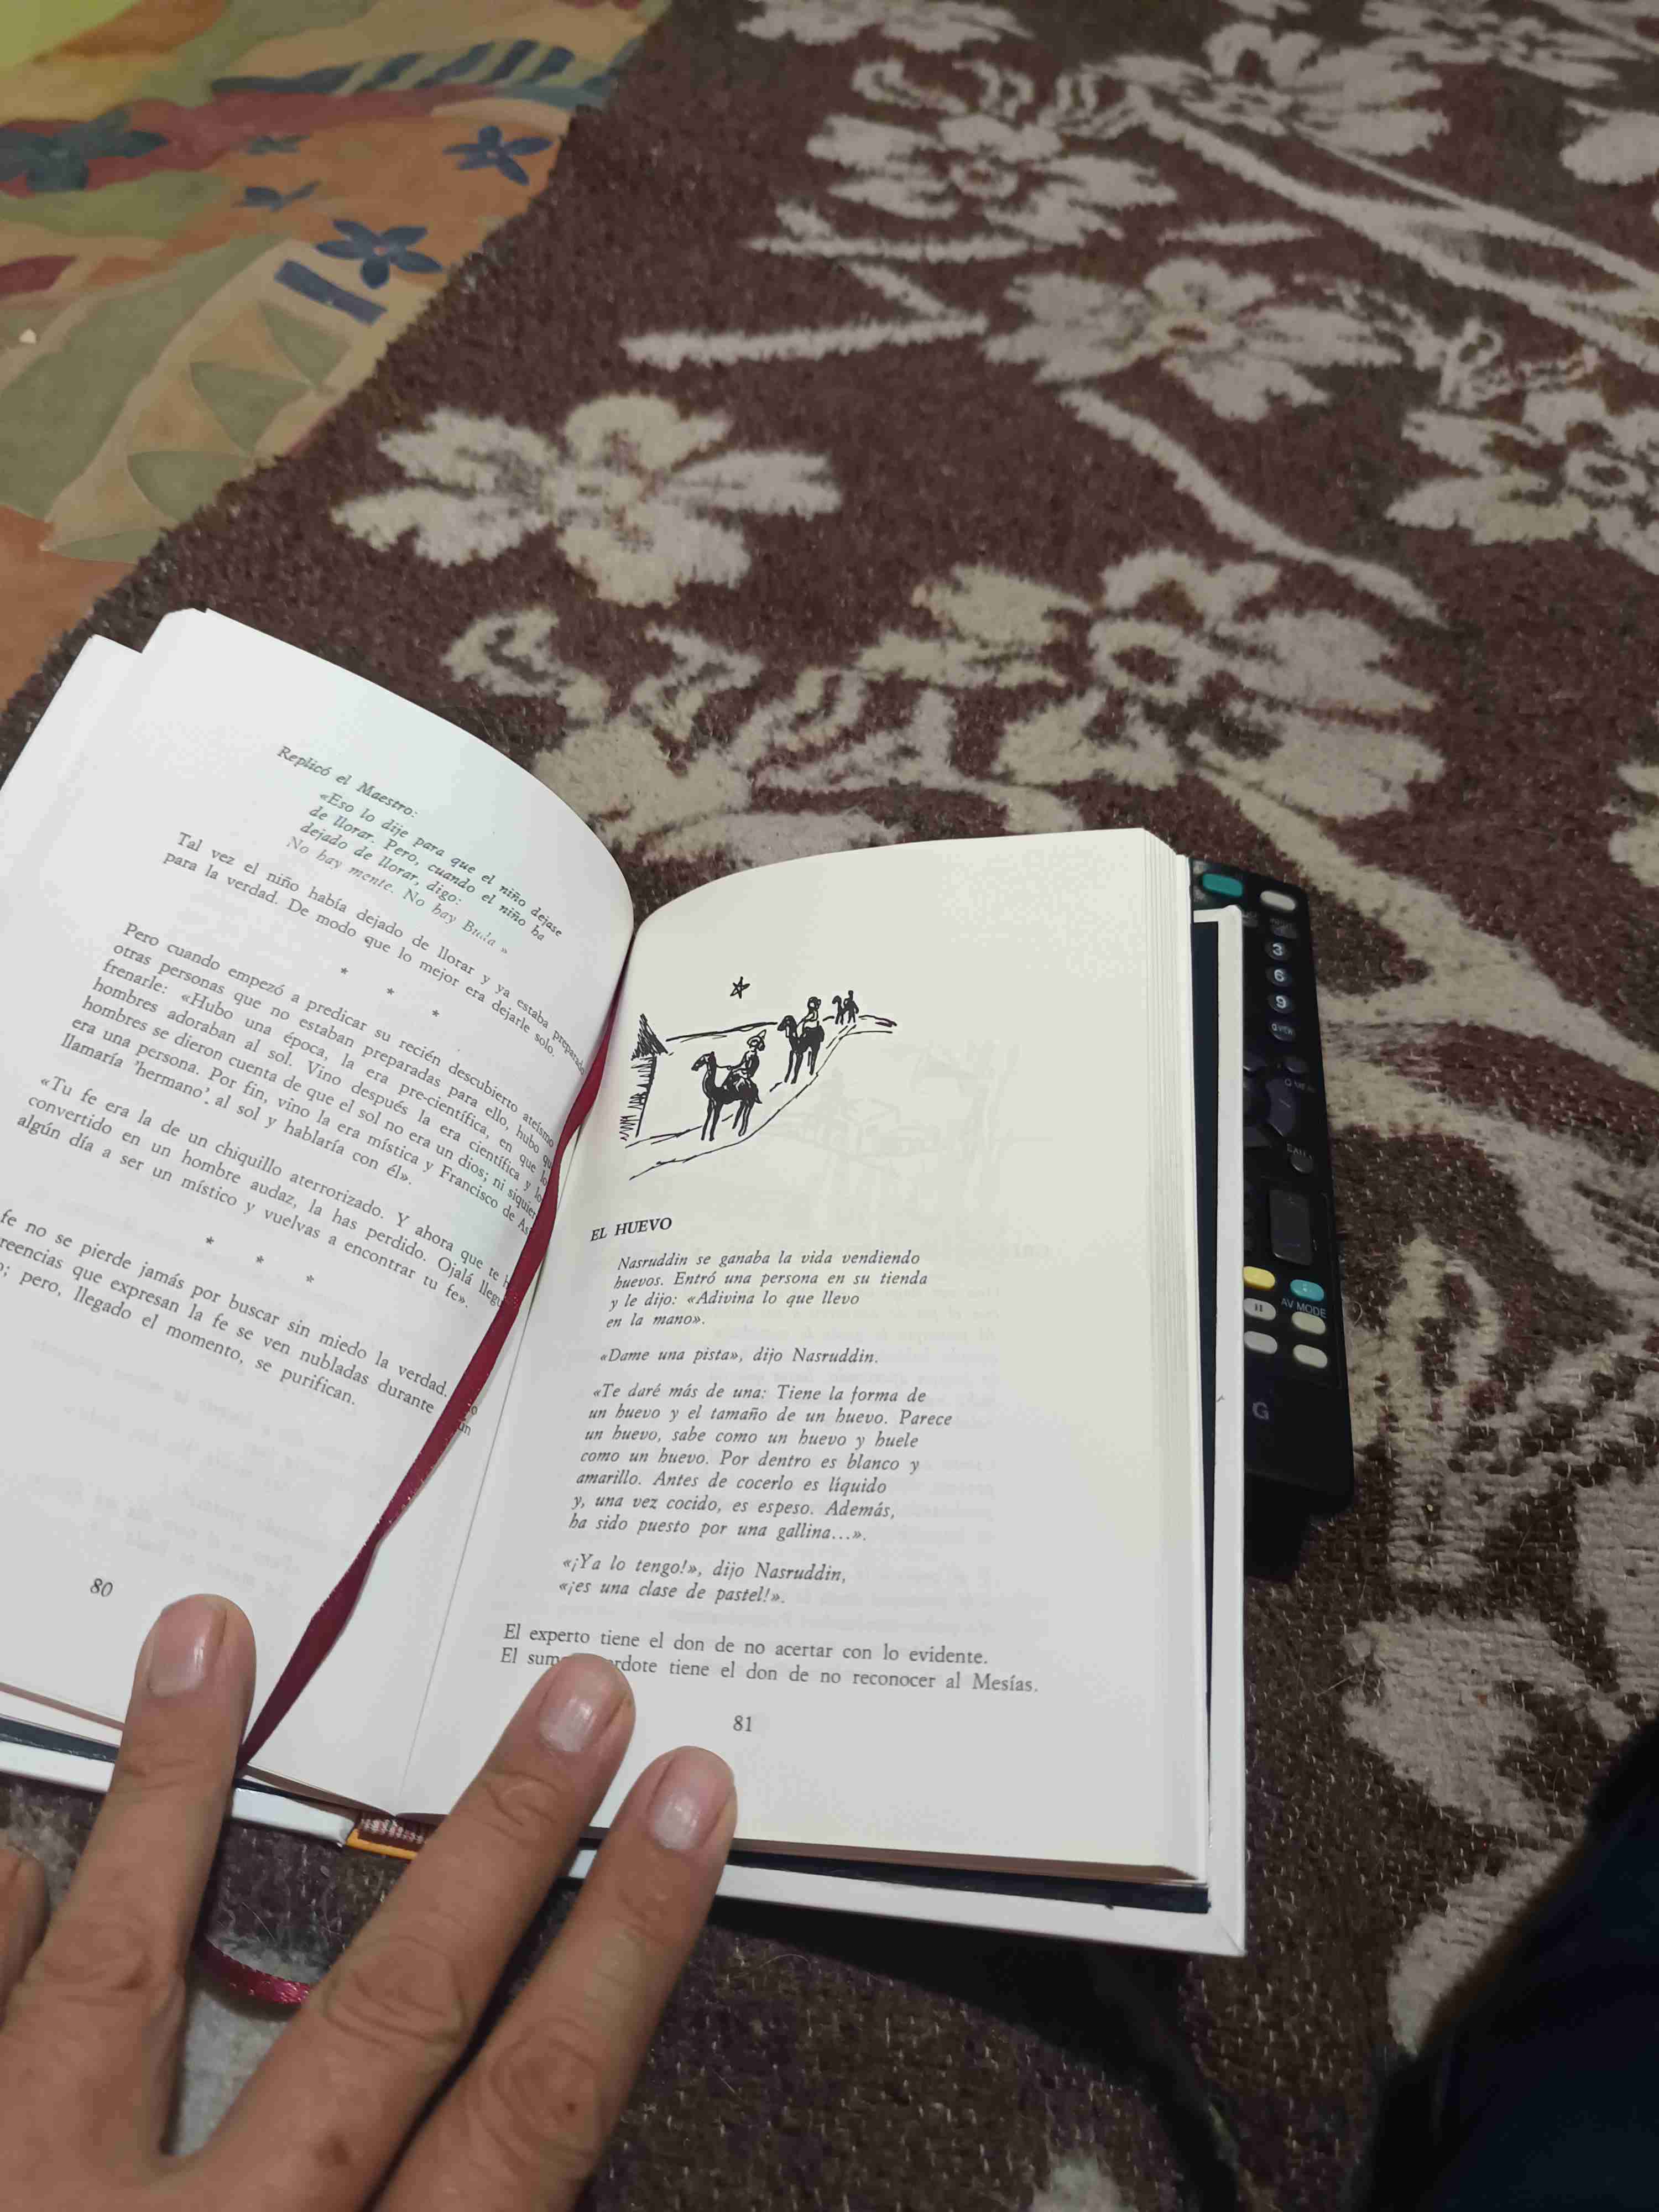 Replicó el Maestro:
«Eso lo dije para que el niño dejase
de llorar. Pero, cuando el niño ha
dejado de llorar, digo:
No hay mente. No hay Buda »
Tal vez el niño había dejado de llorar y ya estaba preparado
para la verdad. De modo que lo mejor era dejarle solo.
* * *
Pero cuando empezó a predicar su recién descubierto ateísmo
otras personas que no estaban preparadas para ello, hubo
frenarle: «Hubo una época, la era pre-científica, en que
hombres adoraban al sol. Vino después la era científica y
hombres se dieron cuenta de que el sol no era un dios; ni
era una persona. Por fin, vino la era mística y Francisco de
llamaría 'hermano' al sol y hablaría con él».
«Tu fe era la de un chiquillo aterrorizado. Y ahora que te
convertido en un hombre audaz, la has perdido. Ojalá
algún día a ser un místico y vuelvas a encontrar tu fe».
* * *
fe no se pierde jamás por buscar sin miedo la verdad.
que expresan la fe se ven nubladas durante
pero, llegado el momento, se purifican.
80
EL HUEVO
Nasruddin se ganaba la vida vendiendo
huevos. Entró una persona en su tienda
y le dijo: «Adivina lo que llevo
en la mano».
«Dame una pista», dijo Nasruddin.
«Te daré más de una: Tiene la forma de
un huevo y el tamaño de un huevo. Parece
un huevo, sabe como un huevo y huele
como un huevo. Por dentro es blanco y
amarillo. Antes de cocerlo es líquido
y, una vez cocido, es espeso. Además,
ha sido puesto por una gallina...».
«¡Ya lo tengo!», dijo Nasruddin,
«¡es una clase de pastel!».
El experto tiene el don de no acertar con lo evidente.
El tiene el don de no reconocer al Mesías.
81
3
6
9
EXIT
AV MODE
G